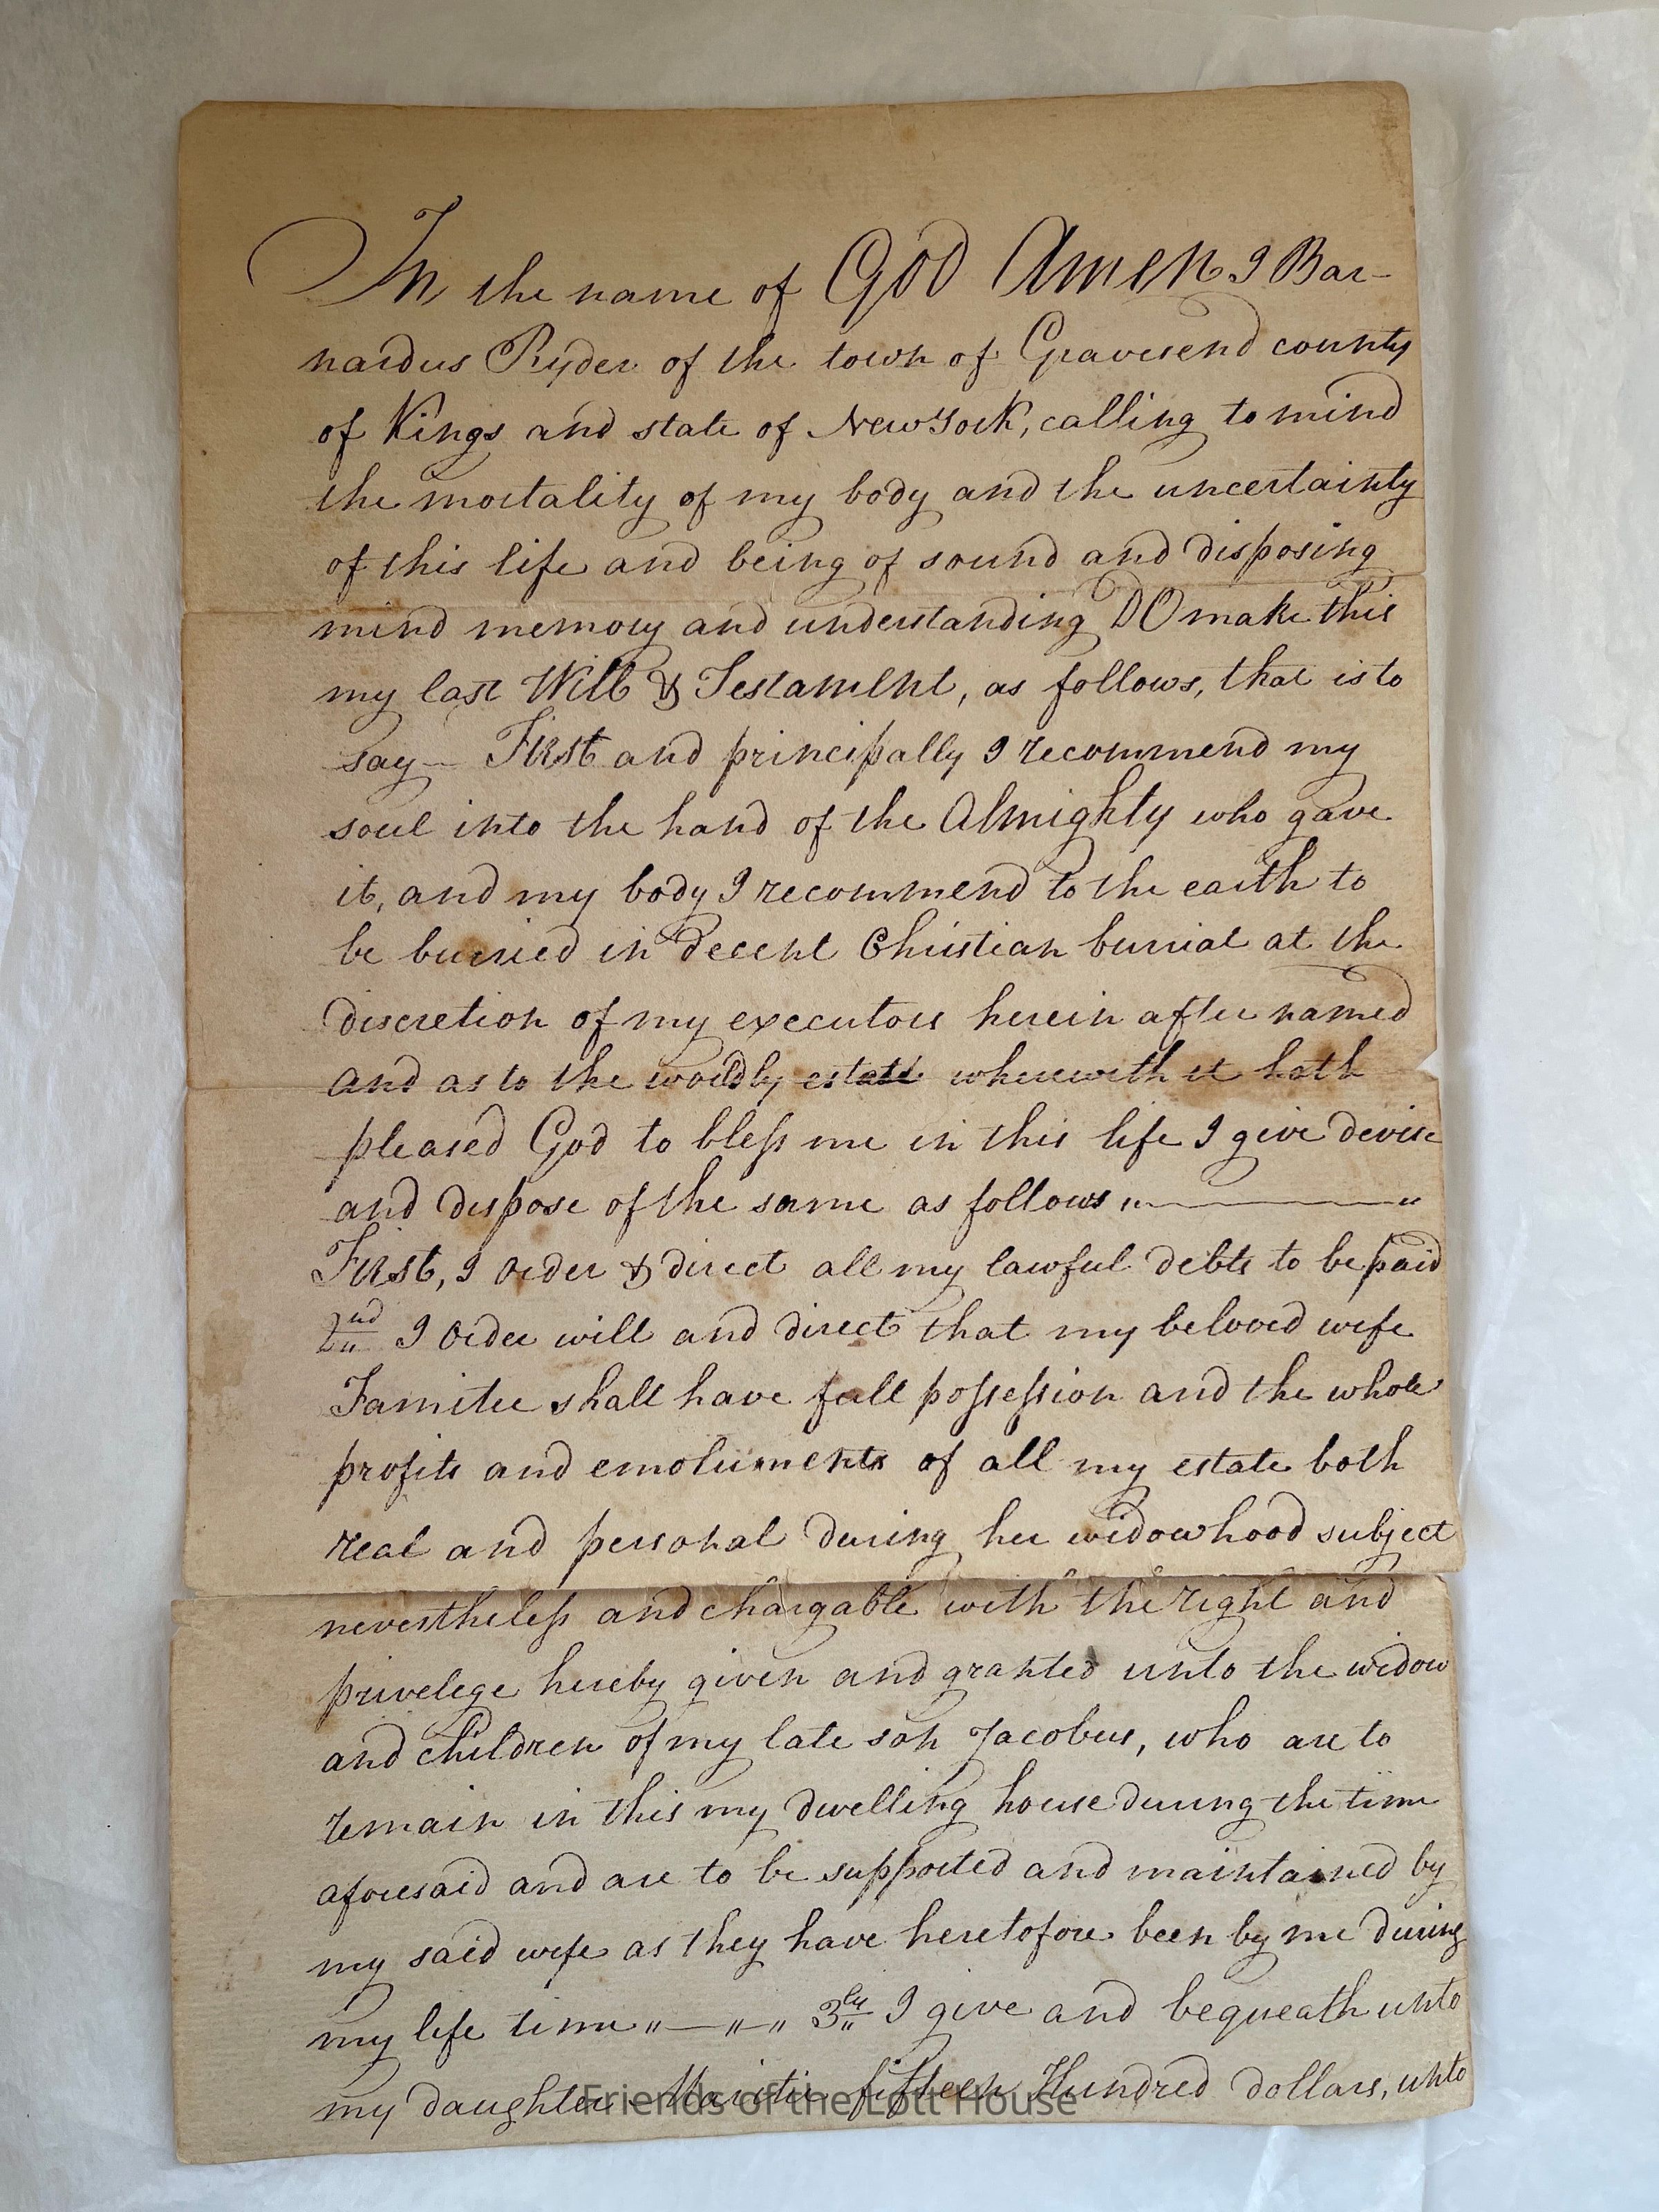 In the name of God Amen I Bar-
nardus Ryder of the town of Gravesend county
of Kings and state of New York, calling to mind
the mortality of my body and the uncertainty
of this life and being of sound and disposing
mind memory and understanding DO make this
my last Will & Testament, as follows, that is to
say — First and principally I recommend my
soul into the hand of the Almighty who gave
it, and my body I recommend to the earth to
be buried in decent Christian burial at the
discretion of my executors herein after named
and as to the worldly estate wherewith it hath
pleased God to bless me in this life I give devise
and dispose of the same as follows „ — "
First, I order & direct all my lawful debts to be paid
2nd I order will and direct that my beloved wife
Famitee shall have full possession and the whole
profits and emoluments of all my estate both
real and personal during her widowhood subject
nevertheless and chargable with the right and
privelege hereby given and granted unto the widow
and children of my late son Jacobus, who are to
remain in this my dwelling house during the time
aforesaid and are to be supported and maintained by
my said wife as they have heretofore been by me during
my life time „ — „ — „ 3ly I give and bequeath unto
my daughter Maritie fifteen Hundred dollars, unto
Friends of the Lott House